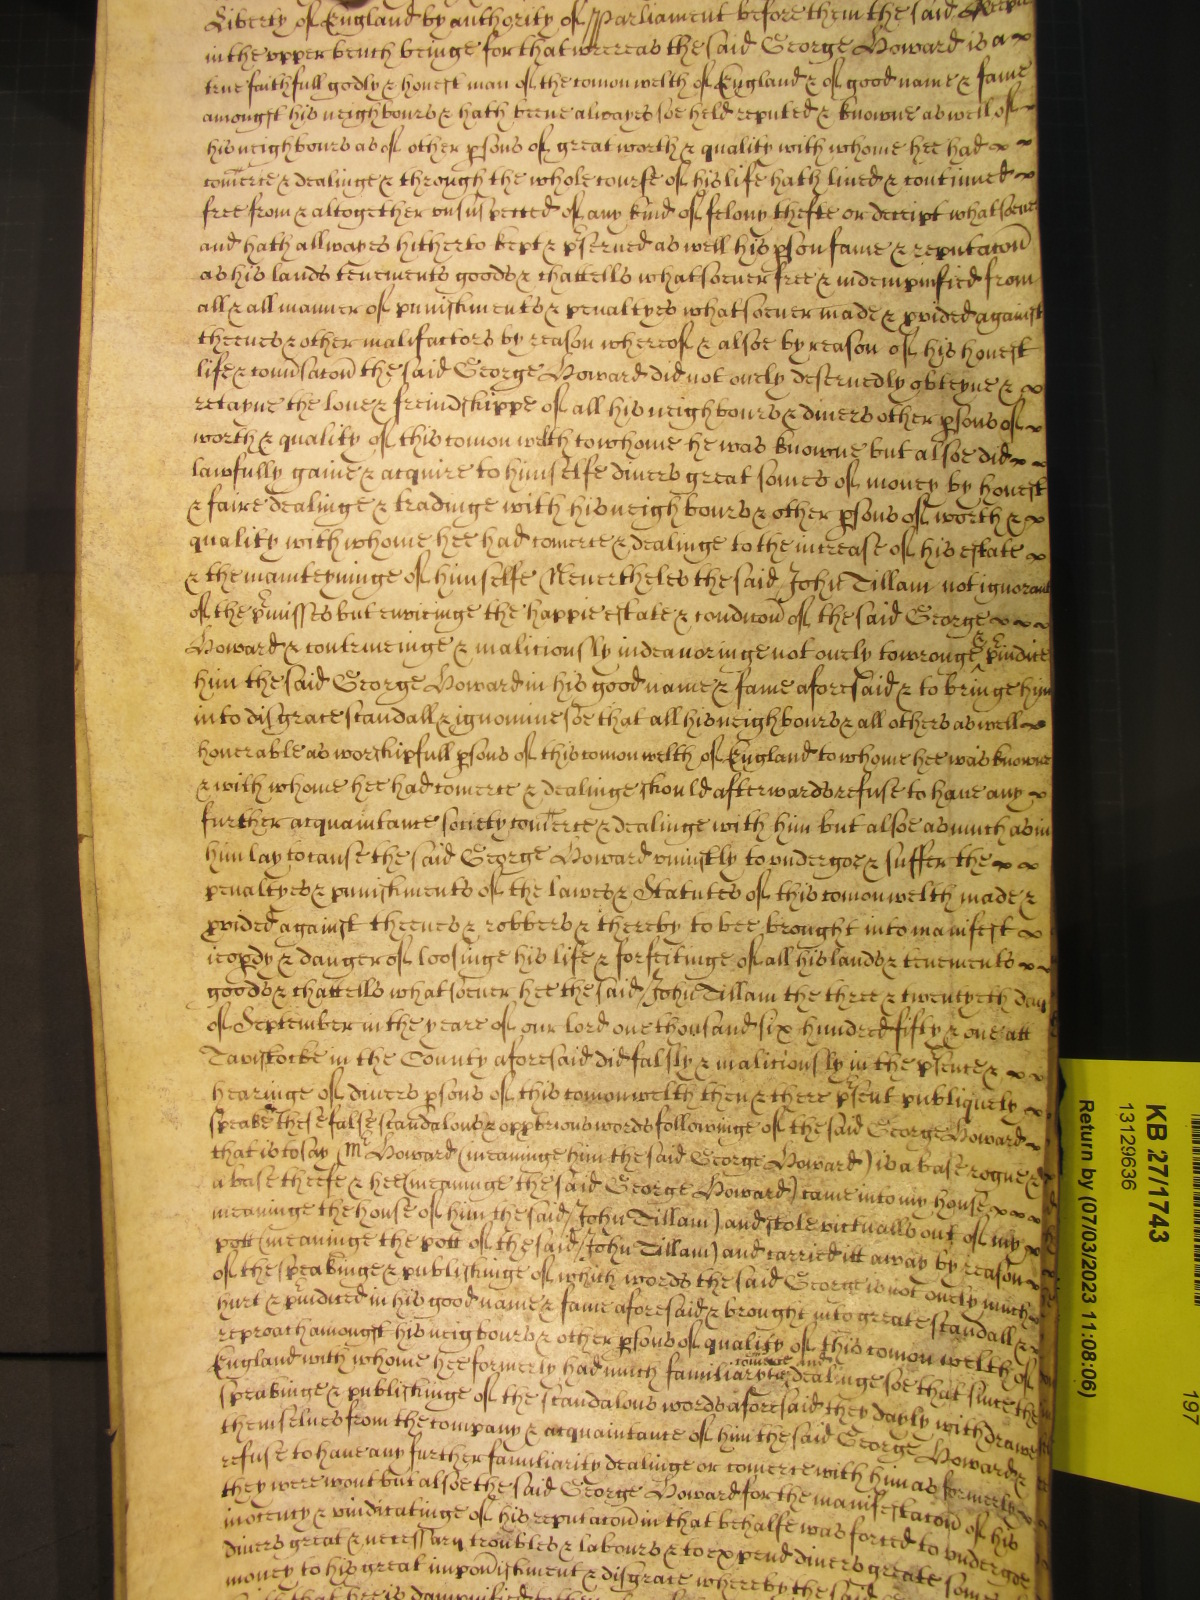 Liberty of England by authority of Parliament before them the said
in the vpper bench beinge for that whereas the said George Howard is a
true faithfull godly & honest man of the comonwelth of England & of good name & fame
amongst his neighbours & hath beene alwayes soe held reputed & knowne as well of
his neighbours as of other psons of great worth & quality with whome hee had
comerce & dealinge & through the whole course of his life hath liued & continued
free from & altogether vnsuspected of any kind of felony thefte or deceipt whatsoeuer
and hath allwayes hitherto kept & pserued as well his pson fame & reputacon
as his lands tenements goods & chattells whatsoeuer free & indempnified from
all & all manner of punishments & penaltyes whatsoeuer made & pvided against
theeues & other malifactors by reason whereof & alsoe by reason of his honest
life & conusacon the said George Howard did not onely deseruedly obteyne &
retayne the loue & freindshippe of all his neighbours & diuers other psons of
worth & quality of this comon welth to whome he was knowne but alsoe did
lawfully gaine & acquire to himselfe diuers great somes of money by honest
& faire dealinge & tradinge with his neighbours & other psons of worth &
quality with whome hee had comerce & dealinge to the increase of his estate
& the mainteyninge of himselfe Neuertheles the said John Tillam not ignorant
of the pmisses but envieinge the happie estate & condicon of the said George
Howard & contriueinge & maliciously indeauoringe not onely to wronge & piudice
him the said George Howard in his good name & fame aforesaid & to bringe him
into disgrace scandall & ignominie soe that all his neighbours & all others as well
honerable as worshipfull psons of this comonwelth of England to whome hee was knowne
& with whome hee had comerce & dealinge should afterwards refuse to haue any
further acquaintance society comerce & dealinge with him but alsoe as much as in
him lay to cause the said George Howard vniustly to vndergoe & suffer the
penaltyes & punishments of the lawes & Statutes of this comonwelth made &
pvided against theeues & robbers & thereby to bee brought into manifest
ieopdy & danger of loosinge his life & forfeitinge of all his lands & tenements
goods & chattells whatsoeuer hee the said John Tillam the three & twentyeth day
of September in the yeare of our lord one thousand six hundred fifty & one att
Tavistocke in the County aforesaid did falsly & maliciously in the psence &
hearinge of diuers psons of this comonwelth then & there psent publiquely
speake these false scandalous & opprbrious words followinge of the said George Howard
that is to say Mr Howard (meaninge him the said George Howard) is a base rogue &
a base theefe & hee (meaninge the said George Howard) came into my house
meaninge the house of him the said John Tillam) and stole victualls out of my
pott (meaninge the pott of the said John Tillam) and carried itt away by reason
of the speakinge & publishinge of which words the said George is not onely much
hurt & piudiced in his good name & fame aforesaid & brought into greate scandall &
reproach amongst his neigbours & other psons of quality of this comon welth of
England with whome hee formerly had much familiarytie comerce and dealinge soe that since the
speakinge & publishinge of the scandalous words aforesaid they dayly withdrawe
themselues from the company & acquaintance of him the said George Howard &
refuse to haue any further familiarity dealinge or comerce with him as formerly
they were wont but alsoe the said George Howard for the manifestacon of his
inocency & vindicatinge of his reputacon in that behalfe was forced to vndergoe
diuers great & necessary troubles & labours & to expend diuers greate somes
money to his great impouishment & disgrace whereby the said
that hee is dampnified
KB 27/1743
13129636
Return by (07/03/2023 11:08:06)
197